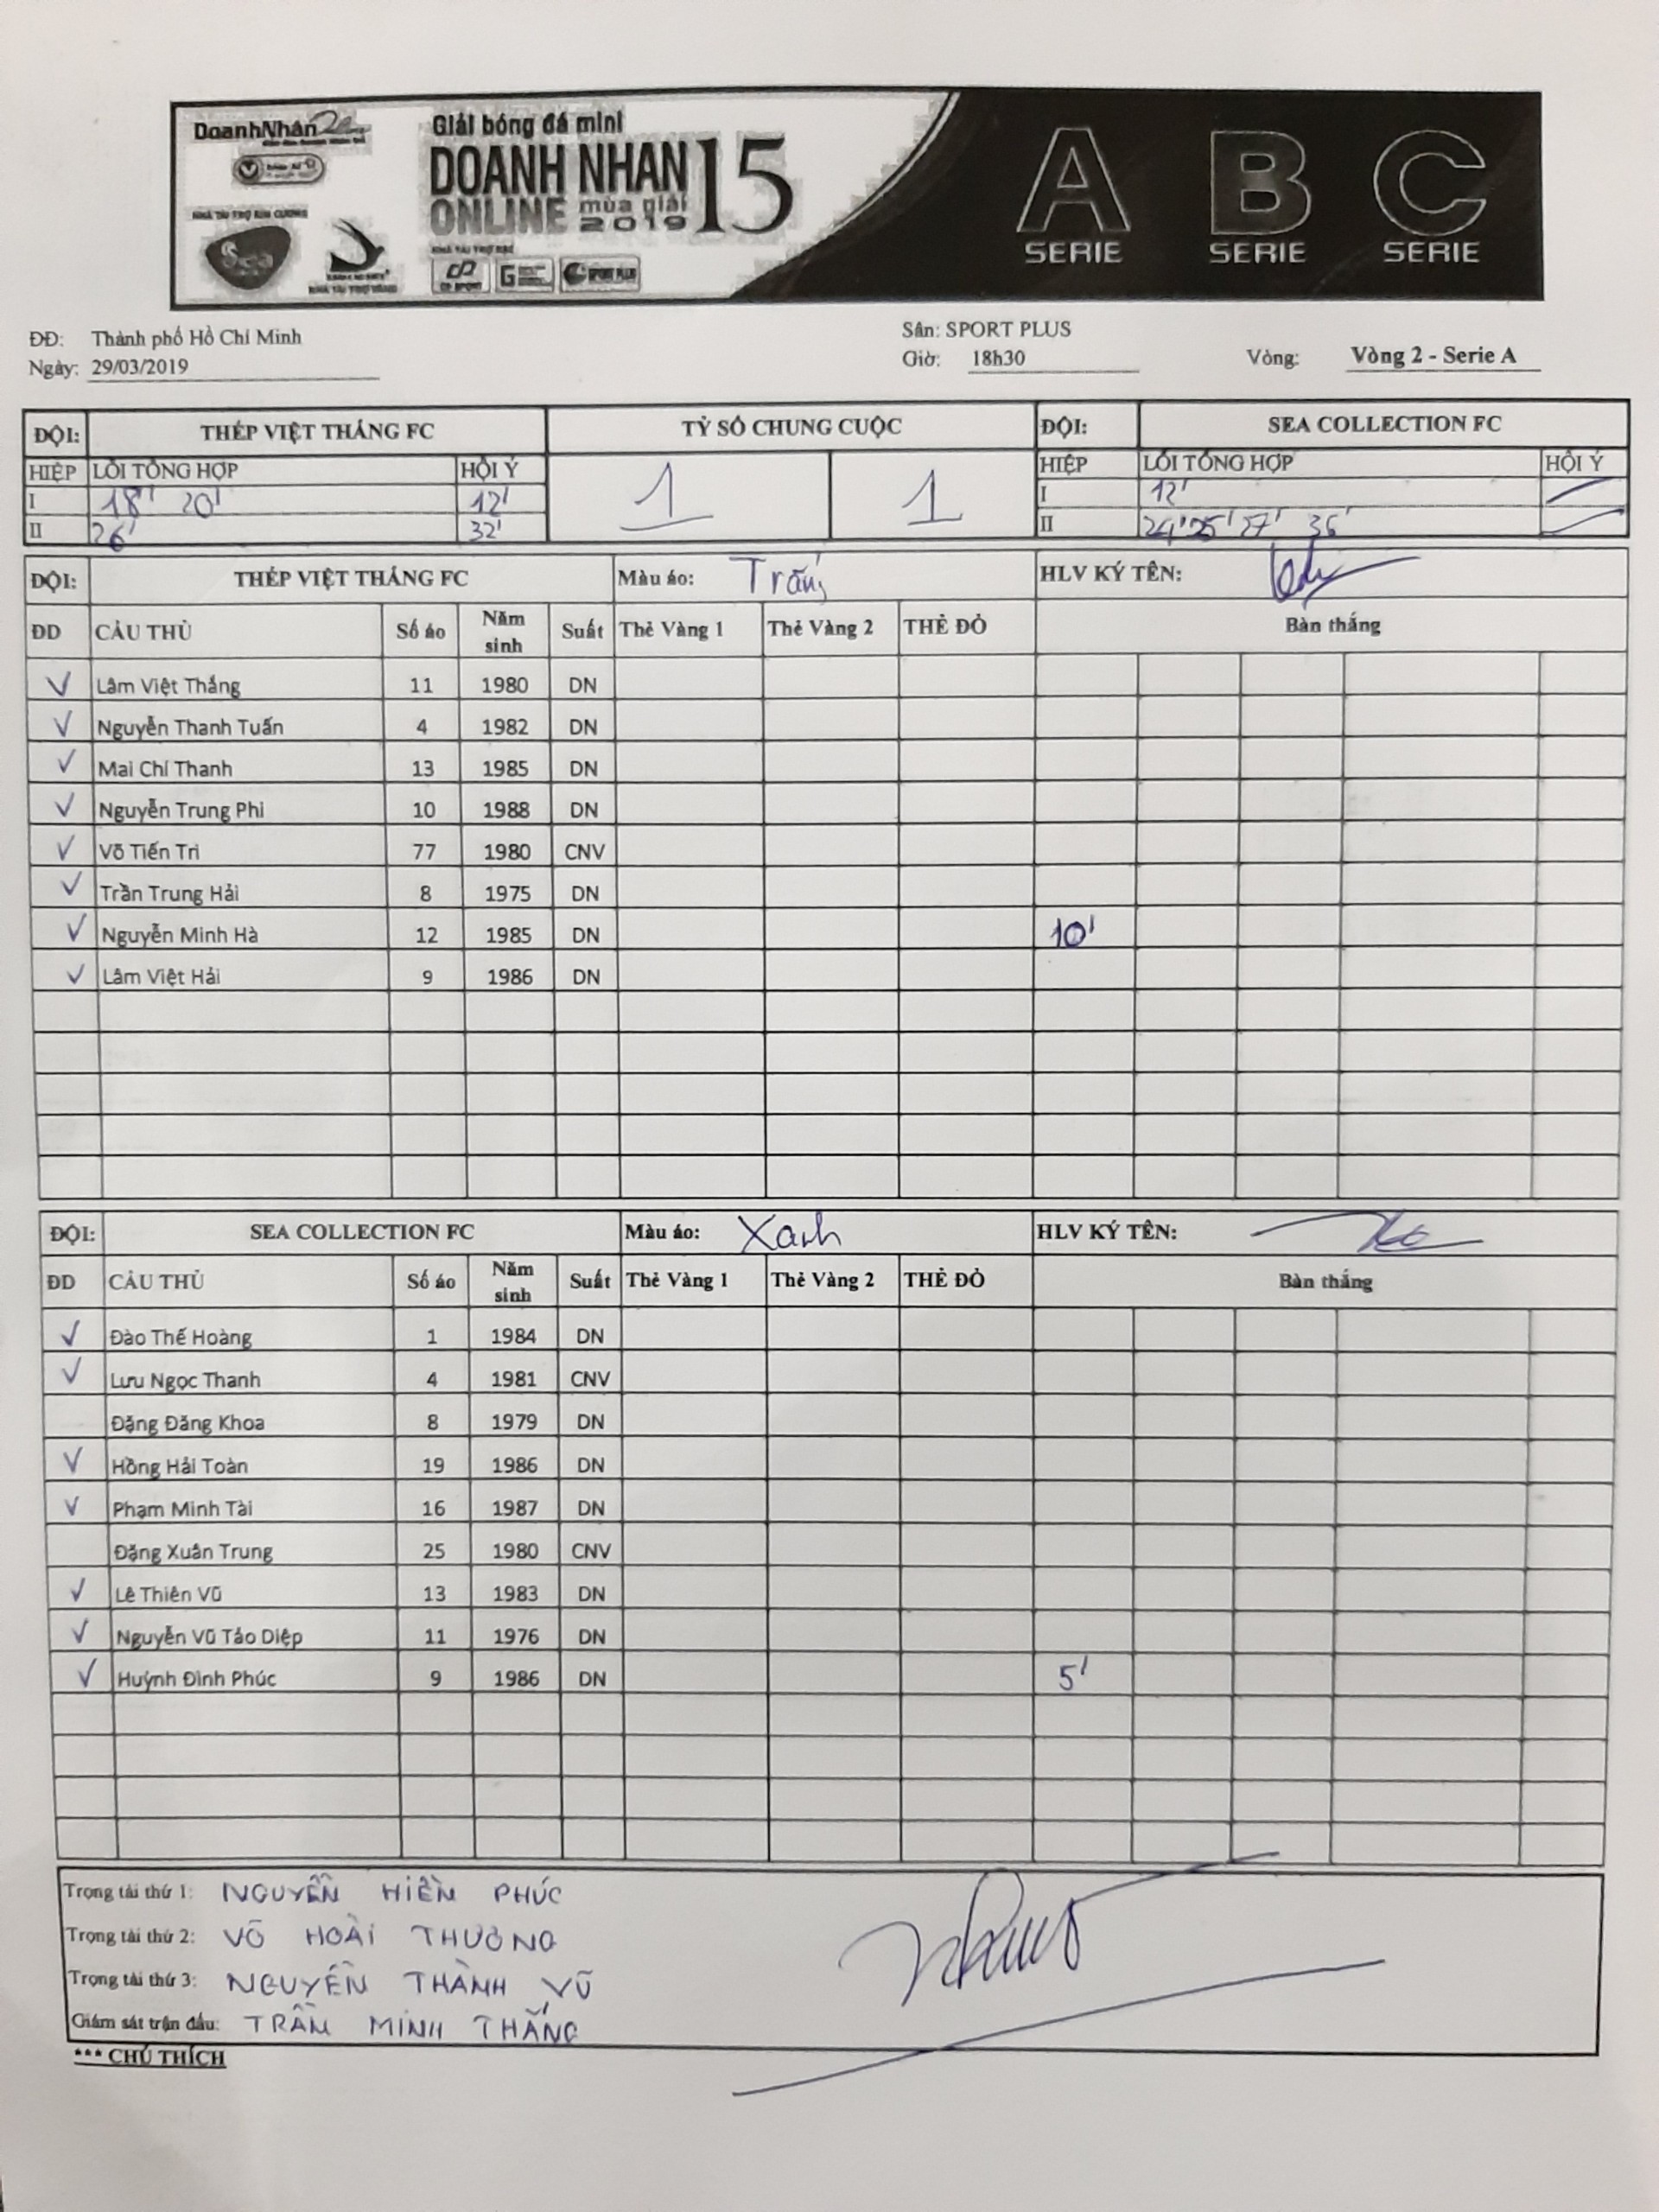 DoanhNhân
Giải bóng đá mini
DOANH NHAN 15
ONLINE mùa giải 2019
NHÀ TÀI TRỢ KIM CƯƠNG
Sea
NHÀ TÀI TRỢ VÀNG
NHÀ TÀI TRỢ BẠC
CP SPORT G SPORT PLUS
A B C
SERIE SERIE SERIE
ĐĐ: Thành phố Hồ Chí Minh Sân: SPORT PLUS
Ngày: 29/03/2019 Giờ: 18h30 Vòng: Vòng 2 - Serie A
ĐỘI: THÉP VIỆT THẮNG FC TỶ SỐ CHUNG CUỘC ĐỘI: SEA COLLECTION FC
HIỆP LỖI TỔNG HỢP HỘI Ý 1 1 HIỆP LỖI TỔNG HỢP HỘI Ý
I 18' 20' 12' I 12'
II 26' 32' II 24' 25' 27' 36'
ĐỘI: THÉP VIỆT THẮNG FC Màu áo: Trắng HLV KÝ TÊN:
ĐD CẦU THỦ Số áo Năm sinh Suất Thẻ Vàng 1 Thẻ Vàng 2 THẺ ĐỎ Bàn thắng
Lâm Việt Thắng 11 1980 DN
Nguyễn Thanh Tuấn 4 1982 DN
Mai Chí Thanh 13 1985 DN
Nguyễn Trung Phi 10 1988 DN
Võ Tiến Tri 77 1980 CNV
Trần Trung Hải 8 1975 DN
Nguyễn Minh Hà 12 1985 DN 10'
Lâm Việt Hải 9 1986 DN
ĐỘI: SEA COLLECTION FC Màu áo: Xanh HLV KÝ TÊN:
ĐD CẦU THỦ Số áo Năm sinh Suất Thẻ Vàng 1 Thẻ Vàng 2 THẺ ĐỎ Bàn thắng
Đào Thế Hoàng 1 1984 DN
Lưu Ngọc Thanh 4 1981 CNV
Đặng Đăng Khoa 8 1979 DN
Hồng Hải Toàn 19 1986 DN
Phạm Minh Tài 16 1987 DN
Đặng Xuân Trung 25 1980 CNV
Lê Thiên Vũ 13 1983 DN
Nguyễn Vũ Tảo Diệp 11 1976 DN
Huỳnh Đình Phúc 9 1986 DN 5'
Trọng tài thứ 1: NGUYỄN HIỀN PHÚC
Trọng tài thứ 2: VÕ HOÀI THƯƠNG
Trọng tài thứ 3: NGUYỄN THÀNH VŨ
Giám sát trận đấu: TRẦN MINH THẮNG
*** CHÚ THÍCH